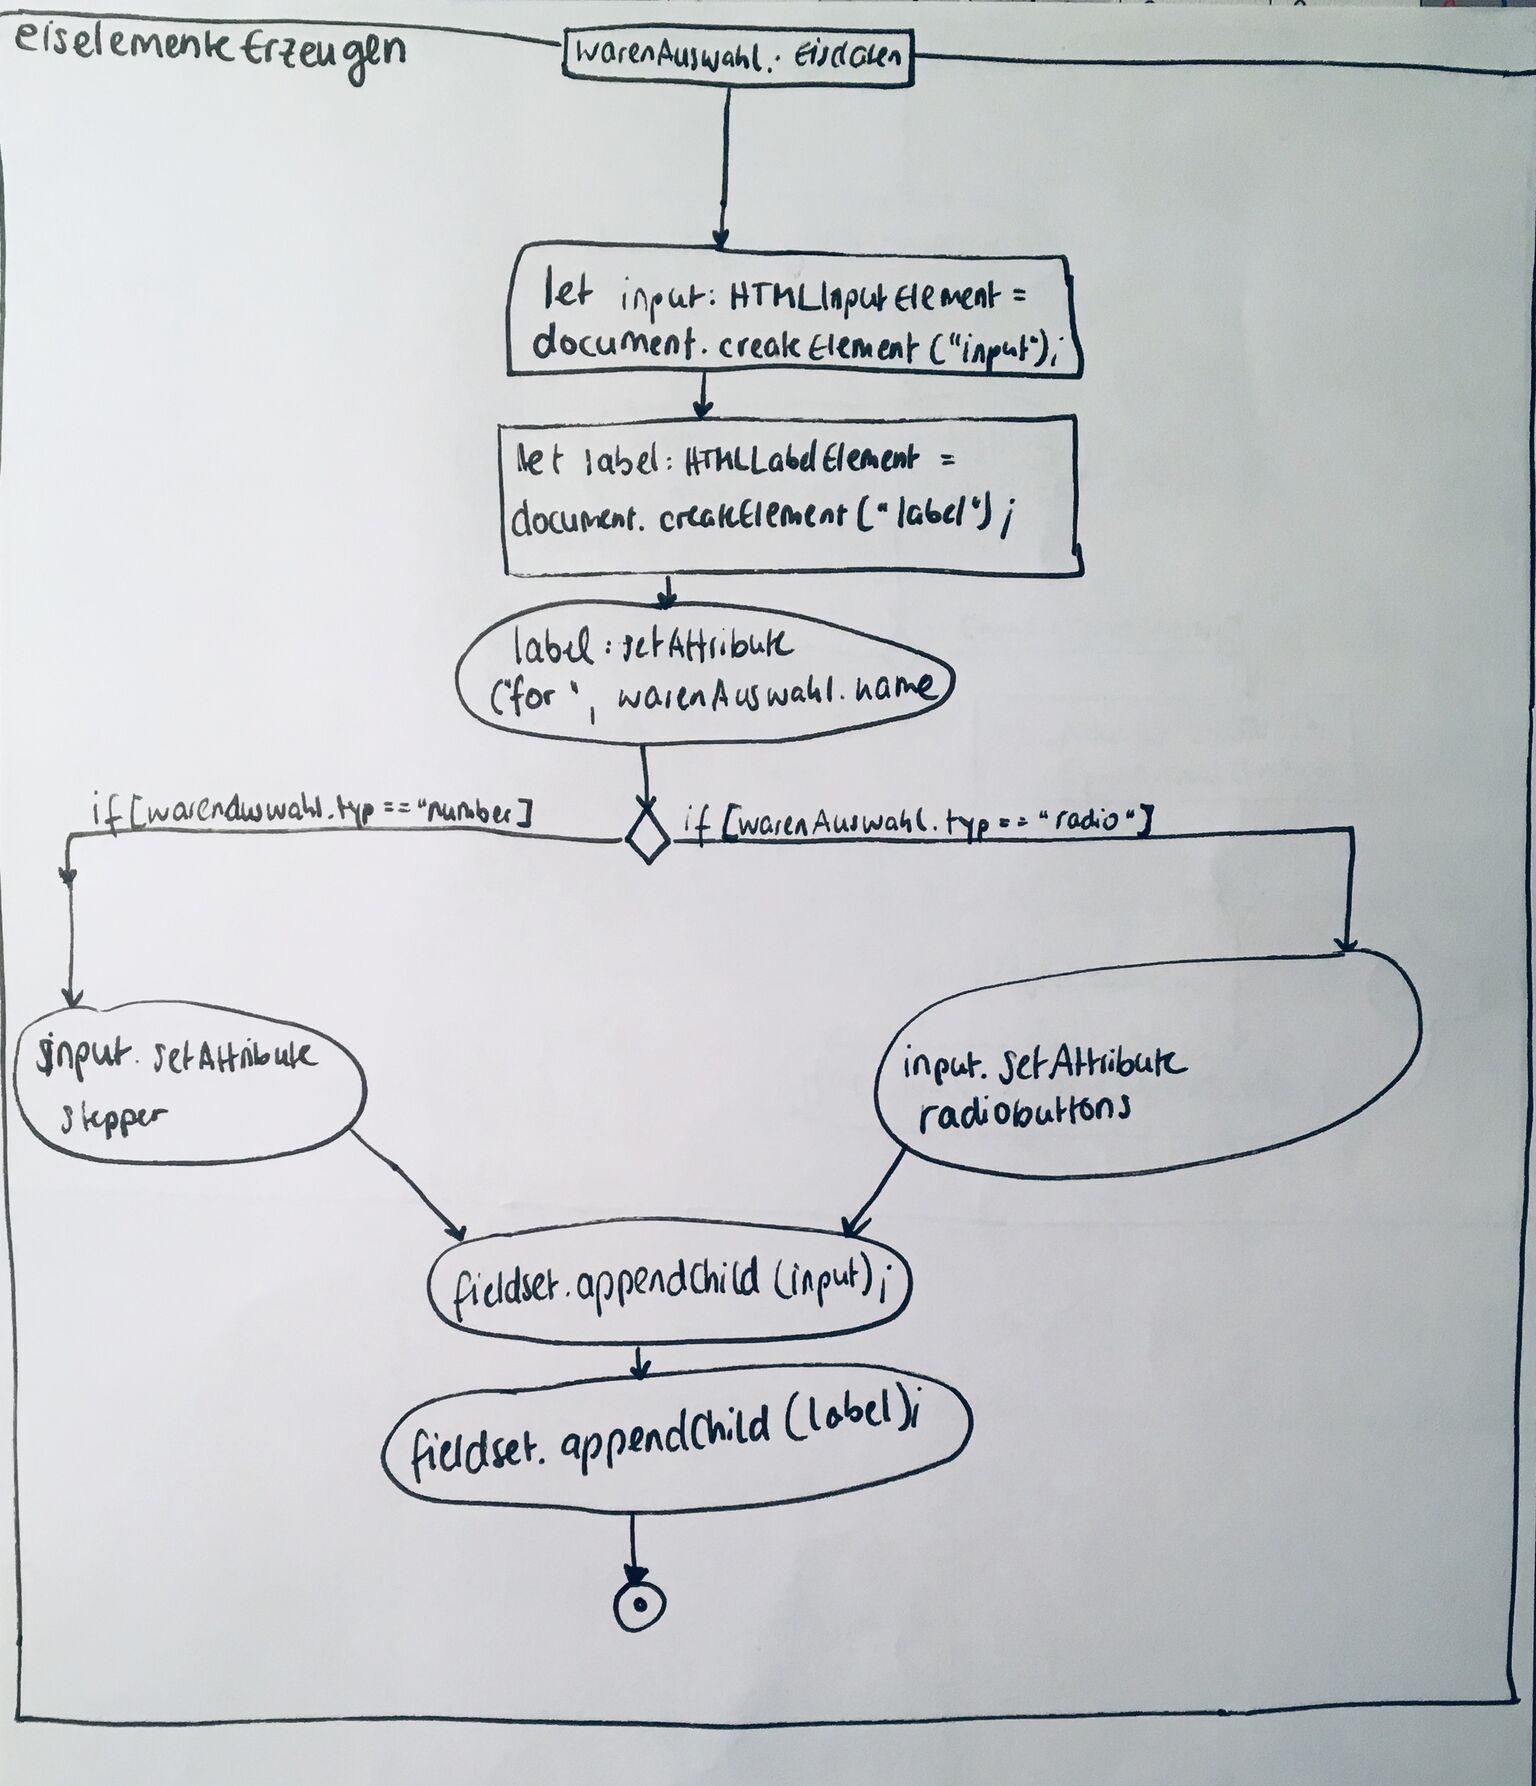 eiselementeErzeugen
warenAuswahl: Eisdaten
let input: HTMLInputElement =
document.createElement("input");
let label: HTMLLabelElement =
document.createElement("label");
label:setAttribute
("for", warenAuswahl.name
if [warenAuswahl.typ == "number]
if [warenAuswahl.typ == "radio"]
input.setAttribute
stepper
input.setAttribute
radiobuttons
fieldset.appendChild (input);
fieldset.appendChild (label);